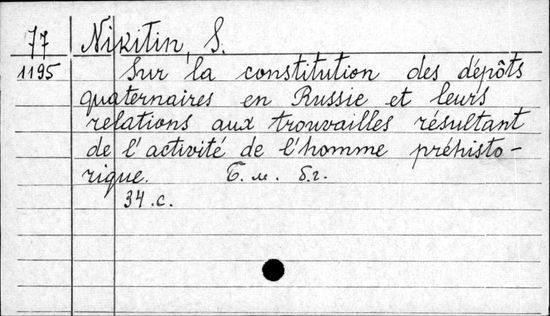 77 Nikitin, S.
1195 Sur la constitution des dépôts
quaternaires en Russie et leurs
relations aux trouvailles résultant
de l'activité de l'homme préhisto-
rique. Б.м. б.г.
34 с.